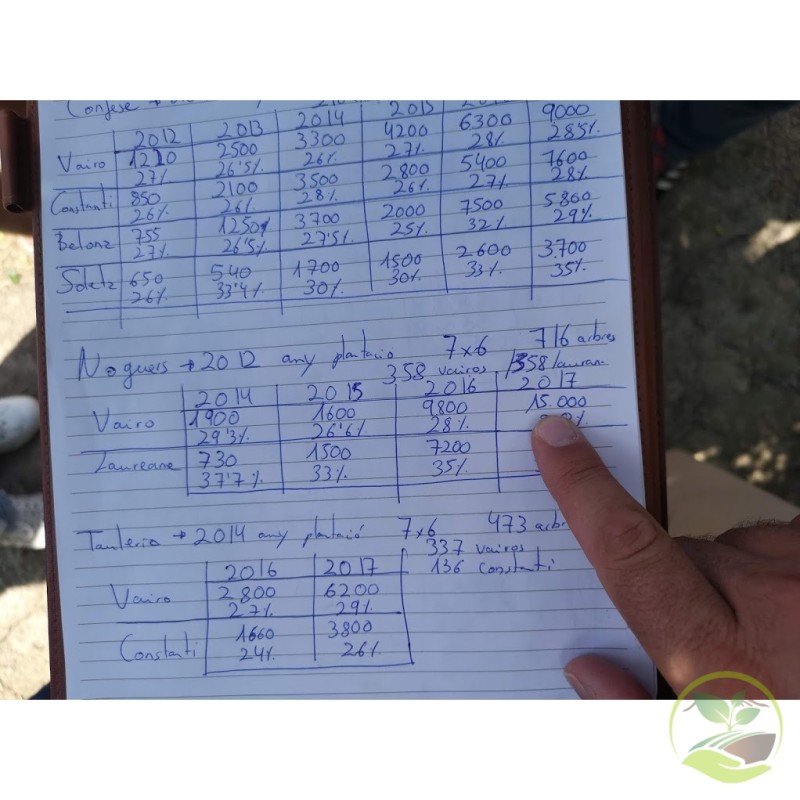 Confese →
2012 2013 2014 2015
Vairo 1210 2500 3300 4200 6300 9000
27% 26'5% 26% 27% 28% 285%
Constanti 850 2100 3500 2800 5400 7600
26% 26% 28% 26% 27% 28%
Belona 755 1250 3700 2000 7500 5800
27% 26'5% 27'5% 25% 32% 29%
Soleta 650 540 1700 1500 2600 3.700
26% 33'4% 30% 30% 33% 35%
Noguers → 2012 any plantació 7x6 716 arbres
358 vairos / 358 laurean
2014 2015 2016 2017
Vairo 1900 1600 9800 15.000
29'3% 26'6% 28%
Laureane 730 1500 7200
37'7% 33% 35%
Tauleria → 2014 any plantació 7x6 473 arbr
337 vairos
136 Constantí
2016 2017
Vairo 2800 6200
27% 29%
Constantí 1660 3800
24% 26%